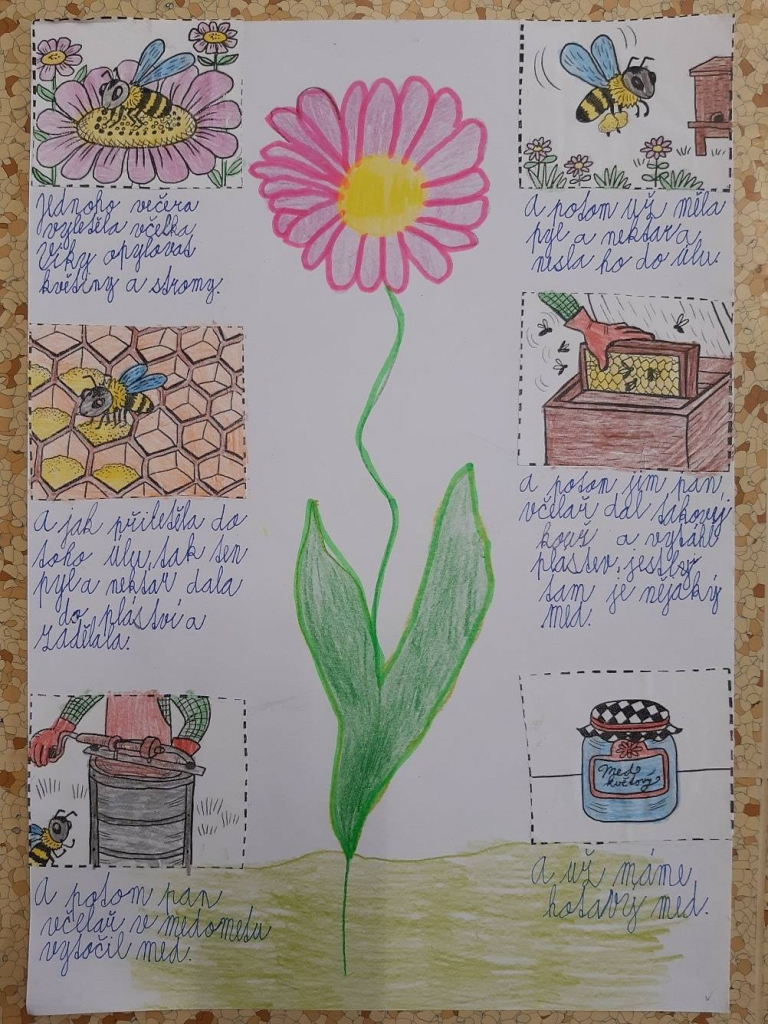 Jednoho večera
vyletěla včelka
Viky opylovat
květiny a stromy.
A potom už měla
pyl a nektar a
nesla ho do úlu.
A jak přiletěla do
toho úlu, tak ten
pyl a nektar dala
do pláství a
zadělala.
A potom jim pan,
včelař dal takovej
kouř a vytáhl
plástev, jestly
tam je nějaký
med.
A potom pan
včelař v medometu
vytočil med.
Med
květový
A už máme
hotavý med.